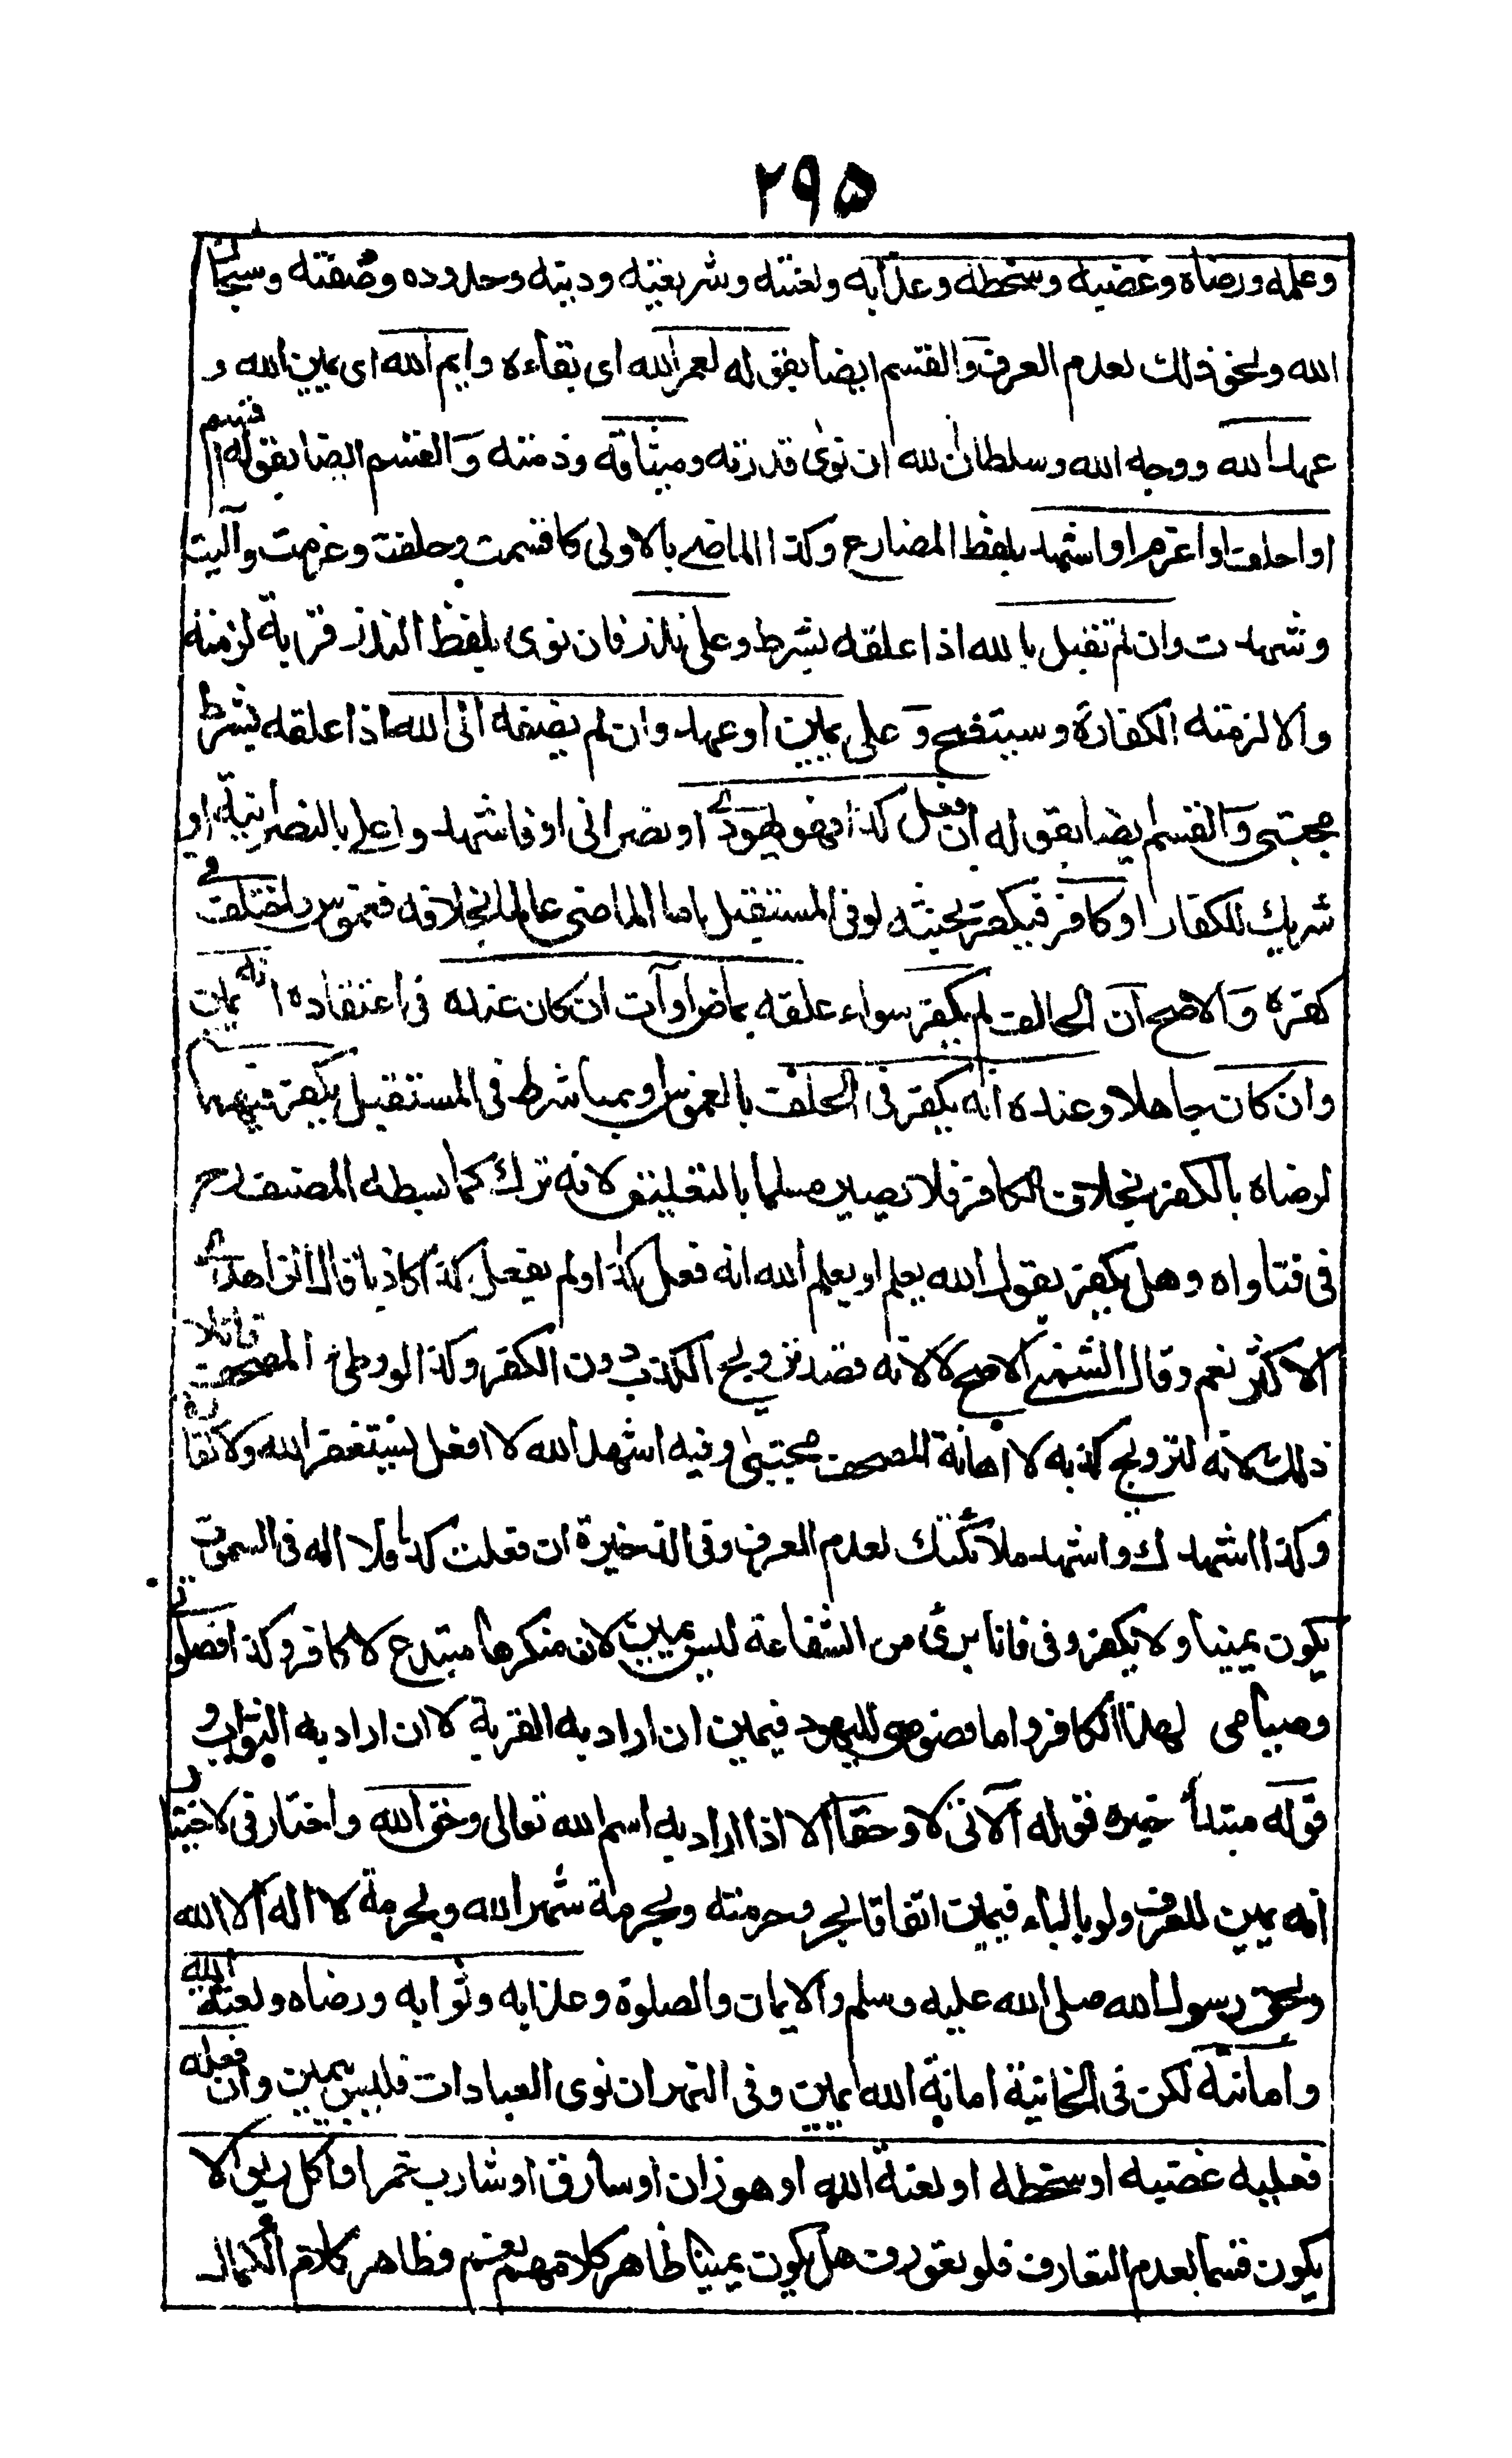 ٢٩٥
وعلمه ورضاه وغضبه وسخطه وعذابه ولعنته وشريعته ودينه وحدوده وصفته وسبحان
الله ونحو ذلك لعدم العرف والقسم ايضا بقوله لعمر الله اى بقاءه وايم الله اى يمين الله و
عهد الله ووجه الله وسلطان لله ان نوى قدرته وميثاقه وذمته والقسم ايضا بقوله اقسم
او احلف او اعزم او اشهد بلفظ المضارع وكذا الماضى بالاولى كاقسمت وحلفت وعزمت وآليت
وشهدت وان لم تقبل بالله اذا علقه بشرط وعلى نذر فان نوى بلفظ النذر قربة لزمته
والا لزمته الكفارة وسيتضح وعلى يمين او عهد وان لم يضفه الى الله اذا علقه بشرط
مجتبى والقسم ايضا بقوله ان فعل كذا فهو يهودى او نصرانى او فاشهدوا على بالنصرانية او
شريك للكفار او كافر فيكفر بحنثه لو فى المستقبل اما الماضى عالما بخلافه فغموس واختلف فى
كفره والاصح ان الحالف لم يكفر سواء علقه بماض او آت ان كان عنده فى اعتقاده انه يمين
وان كان جاهلا وعنده انه يكفر فى الحلف بالغموس او بمباشرط فى المستقبل يكفر فيهما
لرضاه بالكفر بخلاف الكافر فلا يصير مسلما بالتعليق لانه ترك كما بسطه المصنف رح
فى فتاواه وهل يكفر بقول الله يعلم او يعلم الله انه فعل كذا او لم يفعل كذا كاذبا قال الزاهدى
الاكثر نعم وقال الشمنى الاصح لا لانه قصد ترويج الكذب دون الكفر وكذا لو وطئ المصحف قائلا
ذلك لانه لترويج كذبه لا اهانة المصحف مجتبى وفيه اشهد الله لا افعل يستغفر الله ولا كفارة
وكذا اشهدك واشهد ملائكتك لعدم العرف وفى الذخيرة ان فعلت كذا فلا اله فى السموت
يكون يمينا ولا يكفر وفى فانا برئ من الشفاعة ليس بيمين لان منكرها مبتدع لا كافر وكذا فصلوتى
وصيامى لهذا الكافر واما فصومى لليهود فيمين ان اراد به القربة لا ان اراد به الثواب و
قوله مبتدأ خبره قوله الآتى لا وحقا الا اذا اراد به اسم الله تعالى وحق الله واختار فى الاختيار
انه يمين للعرف ولو بالباء فيمين اتفاقا بحر وحرمته وبحرمة شهر الله وبحرمة لا اله الا الله
وبحق رسول الله صلى الله عليه وسلم والايمان والصلوة وعذابه وثوابه ورضاه ولعنة الله
وامانته لكن فى الخانية امانة الله يمين وفى النهر ان نوى العبادات فليس بيمين وان فعله
فعليه غضبه او سخطه او لعنة الله او هو زان او سارق او شارب خمر او آكل ربوا لا
يكون قسما لعدم التعارف فلو تعورف هل يكون يمينا ظاهر كلامهم نعم وظاهر كلام الكمال